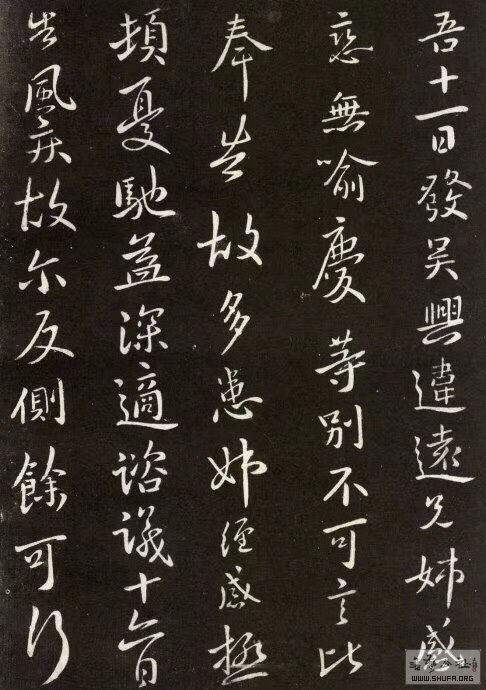 吾十一日發吳興違遠兄姊感
戀無喻慶等別不可言比
奉告故多患姊經感極
頓憂馳益深適諮議十六日
告風疾故尒反側餘可行
WWW.SHUFA.ORG